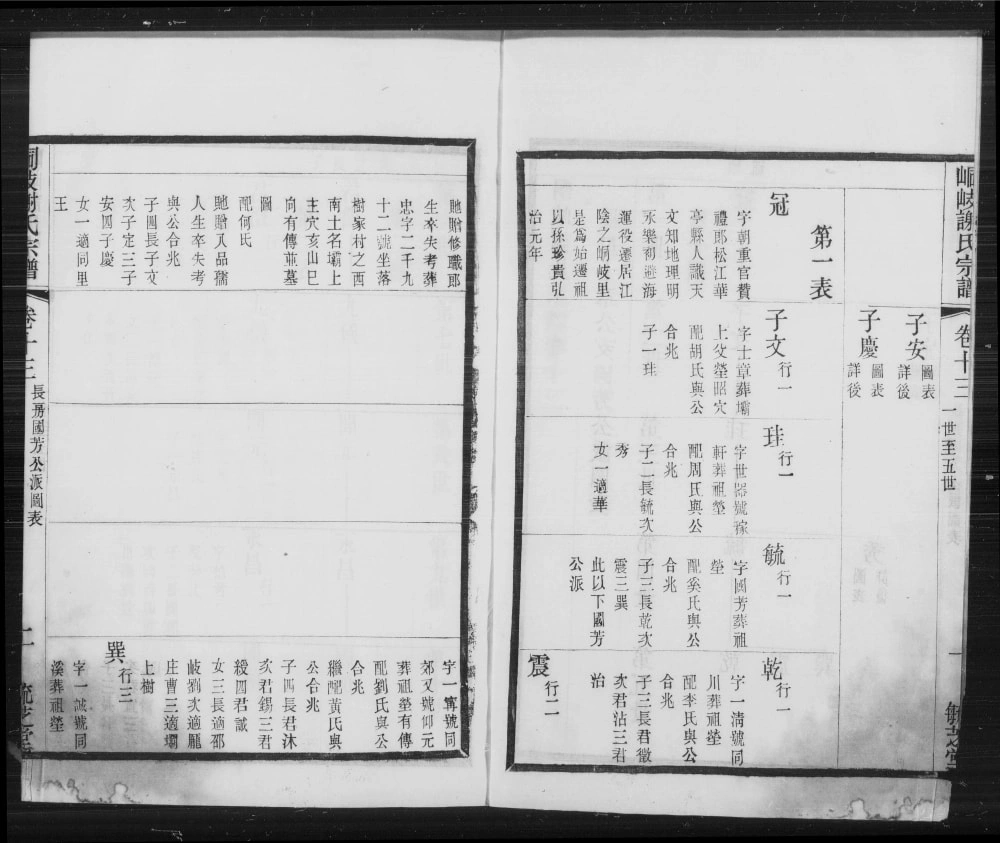 峒岐謝氏宗譜
卷十三
一世至五世
一
子安
圖表
詳後
子慶
圖表
詳後
第一表
冠
字朝重官贊
禮郎松江華
亭縣人識天
文知地理明
永樂初避海
運役遷居江
陰之峒岐里
是爲始遷祖
以孫珍貴弘
治元年
子文
行一
字士章葬壩
上文塋昭穴
配胡氏與公
合兆
子一珪
珪
行一
字世器號稼
軒葬祖塋
配周氏與公
合兆
子二長毓次
秀
女一適華
毓
行一
字國芳葬祖
塋
配奚氏與公
合兆
子三長乾次
震三巽
此以下國芳
公派
乾
行一
字一清號同
川葬祖塋
配李氏與公
合兆
子三長君徵
次君沾三君
治
震
行二
馳贈修職郎
生卒失考葬
忠字二千九
十二號坐落
樹家村之西
南土名壩上
主穴亥山巳
向有傳並墓
圖
配何氏
馳贈又品孺
人生卒失考
與公合兆
子四長子文
次子定三子
安四子慶
女一適同里
王
字一寗號同
郊又號仰元
葬祖塋有傳
配劉氏與公
合兆
繼配黃氏與
公合兆
子四長君沐
次君錫三君
綬四君誠
女三長適邵
岐劉次適龎
庄曹三適壩
上樹
巽
行三
字一誠號同
溪葬祖塋
峒岐謝氏宗譜
卷十三
長房國芳公派圖表
二